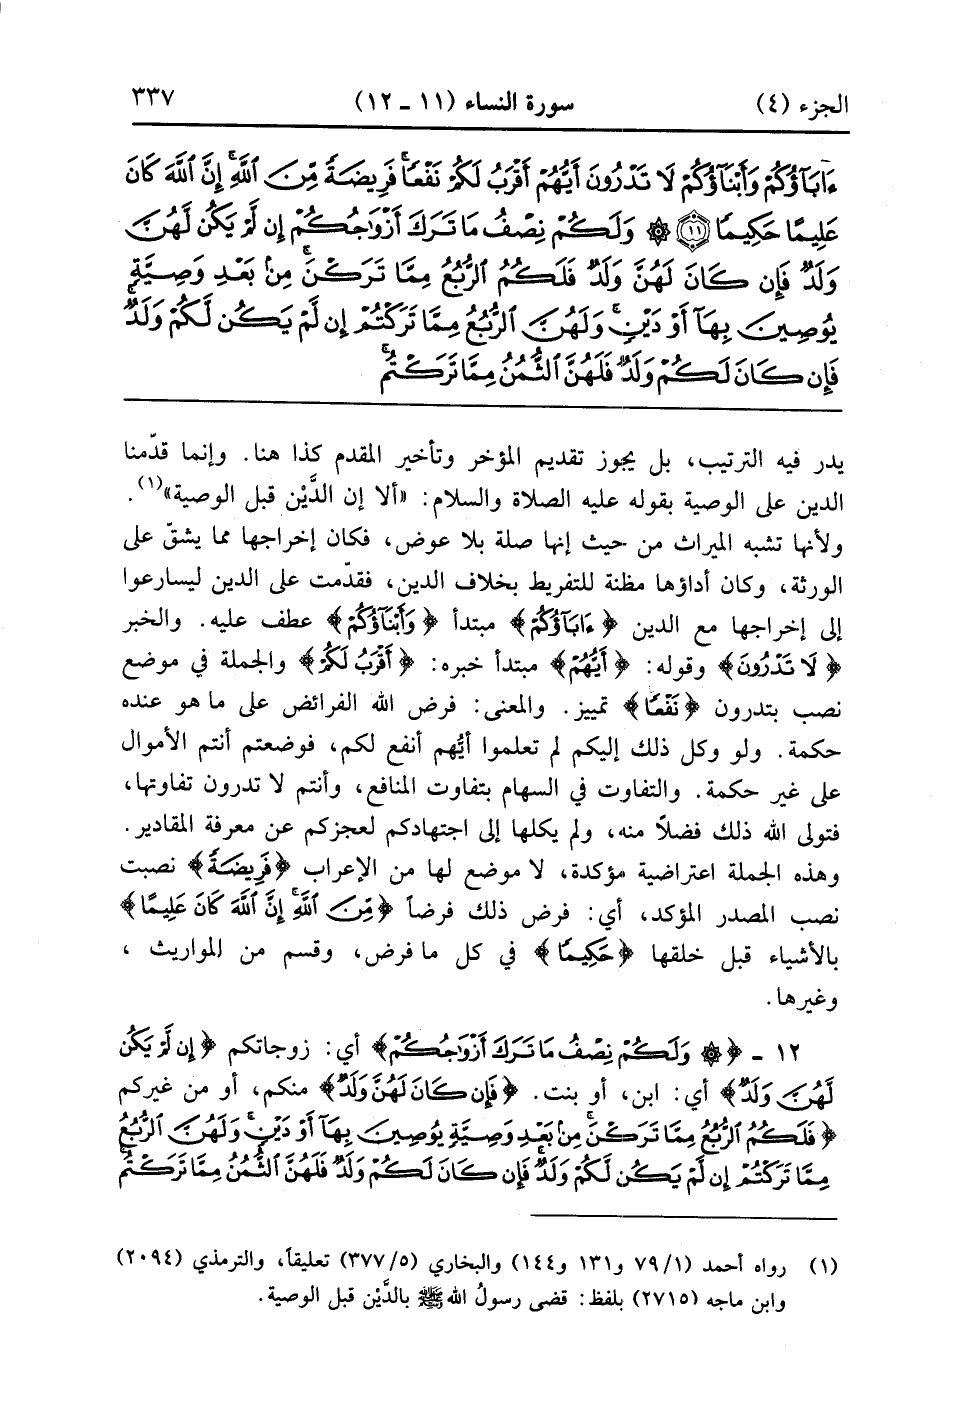 الجزء (٤) سورة النساء (١١ ـ ١٢) ٣٣٧
ءَابَآؤُكُمْ وَأَبْنَآؤُكُمْ لَا تَدْرُونَ أَيُّهُمْ أَقْرَبُ لَكُمْ نَفْعًا فَرِيضَةً مِّنَ اللَّهِ إِنَّ اللَّهَ كَانَ
عَلِيمًا حَكِيمًا ﴿١١﴾ ۞ وَلَكُمْ نِصْفُ مَا تَرَكَ أَزْوَاجُكُمْ إِن لَّمْ يَكُن لَّهُنَّ
وَلَدٌ فَإِن كَانَ لَهُنَّ وَلَدٌ فَلَكُمُ الرُّبُعُ مِمَّا تَرَكْنَ مِنْ بَعْدِ وَصِيَّةٍ
يُوصِينَ بِهَآ أَوْ دَيْنٍ وَلَهُنَّ الرُّبُعُ مِمَّا تَرَكْتُمْ إِن لَّمْ يَكُن لَّكُمْ وَلَدٌ
فَإِن كَانَ لَكُمْ وَلَدٌ فَلَهُنَّ الثُّمُنُ مِمَّا تَرَكْتُمْ
يدر فيه الترتيب، بل يجوز تقديم المؤخر وتأخير المقدم كذا هنا. وإنما قدّمنا
الدين على الوصية بقوله عليه الصلاة والسلام: «ألا إن الدَّيْن قبل الوصية»(١).
ولأنها تشبه الميراث من حيث إنها صلة بلا عوض، فكان إخراجها مما يشقّ على
الورثة، وكان أداؤها مظنة للتفريط بخلاف الدين، فقدّمت على الدين ليسارعوا
إلى إخراجها مع الدين ﴿ءَابَآؤُكُمْ﴾ مبتدأ ﴿وَأَبْنَآؤُكُمْ﴾ عطف عليه. والخبر
﴿لَا تَدْرُونَ﴾ وقوله: ﴿أَيُّهُمْ﴾ مبتدأ خبره: ﴿أَقْرَبُ لَكُمْ﴾ والجملة في موضع
نصب بتدرون ﴿نَفْعًا﴾ تمييز. والمعنى: فرض الله الفرائض على ما هو عنده
حكمة. ولو وكل ذلك إليكم لم تعلموا أيُّهم أنفع لكم، فوضعتم أنتم الأموال
على غير حكمة. والتفاوت في السهام بتفاوت المنافع، وأنتم لا تدرون تفاوتها،
فتولى الله ذلك فضلاً منه، ولم يكلها إلى اجتهادكم لعجزكم عن معرفة المقادير.
وهذه الجملة اعتراضية مؤكدة، لا موضع لها من الإعراب ﴿فَرِيضَةً﴾ نصبت
نصب المصدر المؤكد، أي: فرض ذلك فرضاً ﴿مِّنَ اللَّهِ إِنَّ اللَّهَ كَانَ عَلِيمًا﴾
بالأشياء قبل خلقها ﴿حَكِيمًا﴾ في كل ما فرض، وقسم من المواريث ،
وغيرها.
١٢ ـ ﴿۞ وَلَكُمْ نِصْفُ مَا تَرَكَ أَزْوَاجُكُمْ﴾ أي: زوجاتكم ﴿إِن لَّمْ يَكُن
لَّهُنَّ وَلَدٌ﴾ أي: ابن، أو بنت. ﴿فَإِن كَانَ لَهُنَّ وَلَدٌ﴾ منكم، أو من غيركم
﴿فَلَكُمُ الرُّبُعُ مِمَّا تَرَكْنَ مِنْ بَعْدِ وَصِيَّةٍ يُوصِينَ بِهَآ أَوْ دَيْنٍ وَلَهُنَّ الرُّبُعُ
مِمَّا تَرَكْتُمْ إِن لَّمْ يَكُن لَّكُمْ وَلَدٌ فَإِن كَانَ لَكُمْ وَلَدٌ فَلَهُنَّ الثُّمُنُ مِمَّا تَرَكْتُمْ
(١) رواه أحمد (٧٩/١ و١٣١ و١٤٤) والبخاري (٣٧٧/٥) تعليقاً، والترمذي (٢٠٩٤)
وابن ماجه (٢٧١٥) بلفظ: قضى رسولُ الله ﷺ بالدَّيْن قبل الوصية.